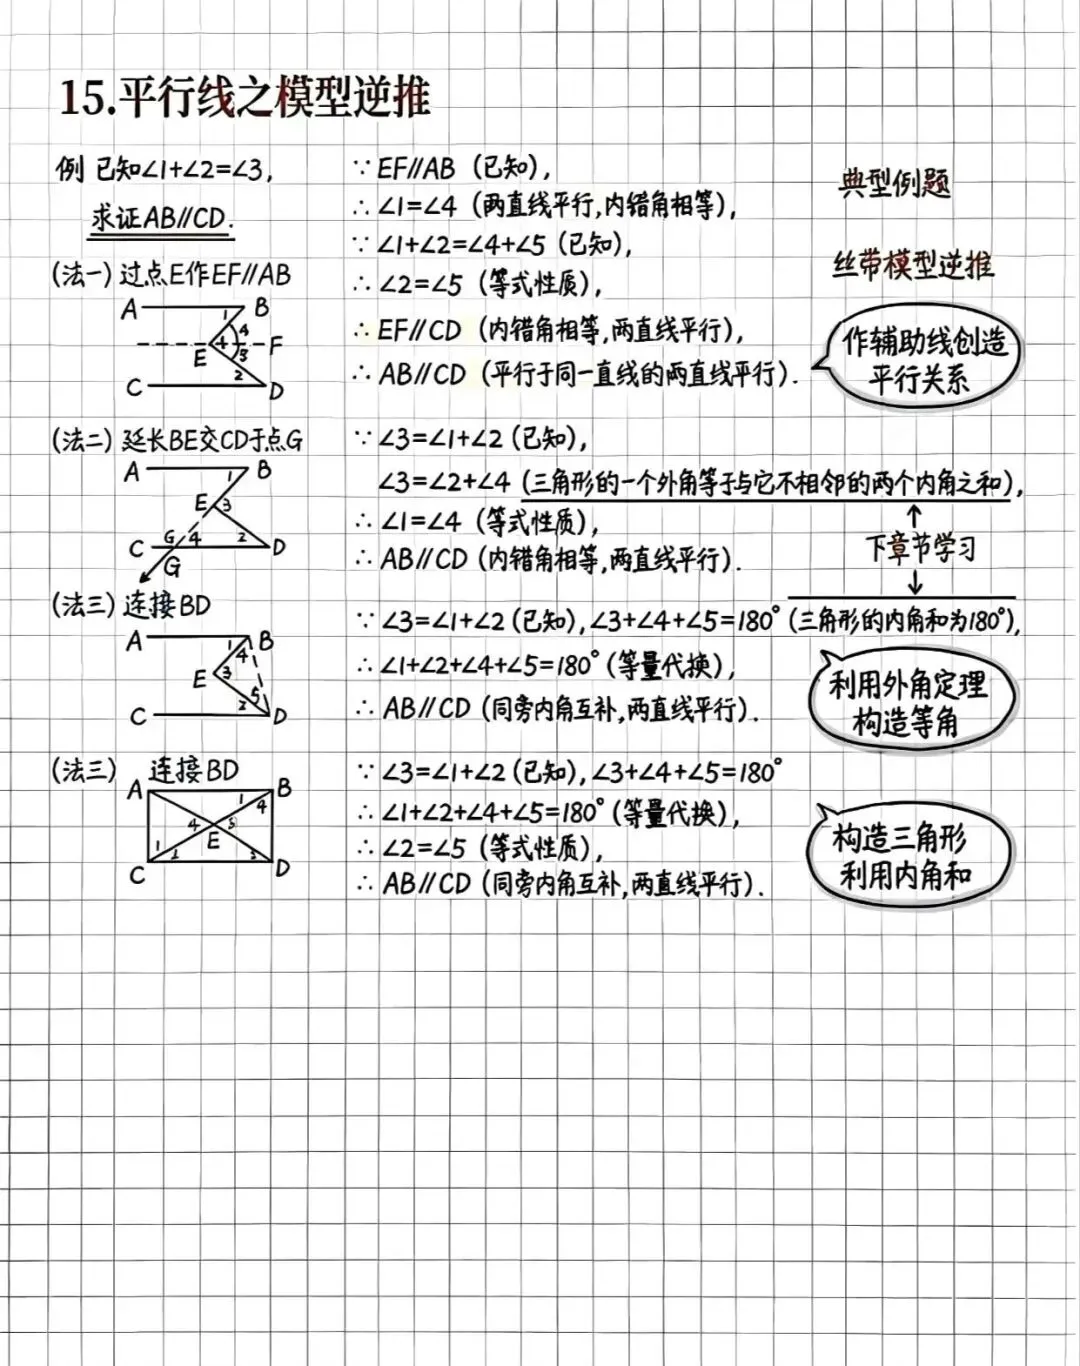 15.平行线之模型逆推
例 已知∠1+∠2=∠3,
求证AB∥CD.
(法一) 过点E作EF∥AB
A B
1 4
E 4 F
3
2
C D
∵ EF∥AB (已知),
∴ ∠1=∠4 (两直线平行,内错角相等),
∵ ∠1+∠2=∠4+∠5 (已知),
∴ ∠2=∠5 (等式性质),
∴ EF∥CD (内错角相等,两直线平行),
∴ AB∥CD (平行于同一直线的两直线平行).
典型例题
丝带模型逆推
作辅助线创造
平行关系
(法二) 延长BE交CD于点G
A B
1
E 3
C G 4 2 D
G
∵ ∠3=∠1+∠2 (已知),
∠3=∠2+∠4 (三角形的一个外角等于与它不相邻的两个内角之和),
∴ ∠1=∠4 (等式性质),
∴ AB∥CD (内错角相等,两直线平行).
下章节学习
(法三) 连接BD
A B
1 4
E 3
5
2
C D
∵ ∠3=∠1+∠2 (已知), ∠3+∠4+∠5=180° (三角形的内角和为180°),
∴ ∠1+∠2+∠4+∠5=180° (等量代换),
∴ AB∥CD (同旁内角互补,两直线平行).
利用外角定理
构造等角
(法三) 连接BD
A B
1 4
4 5
E
1 2 3
C D
∵ ∠3=∠1+∠2 (已知), ∠3+∠4+∠5=180°
∴ ∠1+∠2+∠4+∠5=180° (等量代换),
∴ ∠2=∠5 (等式性质),
∴ AB∥CD (同旁内角互补,两直线平行).
构造三角形
利用内角和